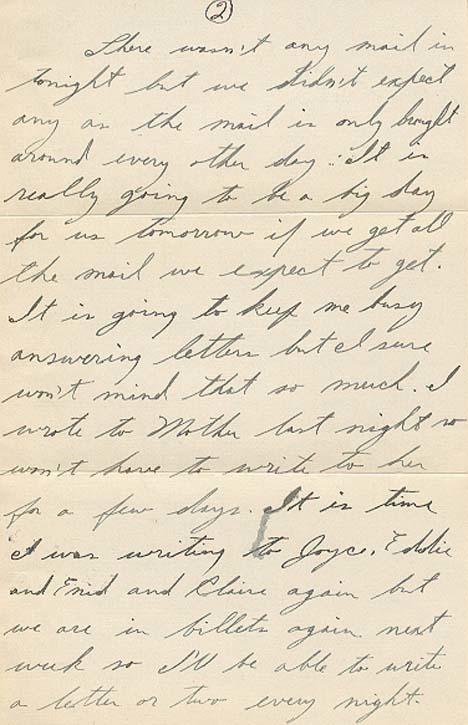 2
There wasn't any mail in
tonight but we didn't expect
any as the mail is only brought
around every other day. It is
really going to be a big day
for us tomorrow if we get all
the mail we expect to get.
It is going to keep me busy
answering letters but I sure
won't mind that so much. I
wrote to Mother last night so
won't have to write to her
for a few days. It is time
I was writing to Joyce, Eddie
and Enid and Claire again but
we are in billets again next
week so I'll be able to write
a letter or two every night.